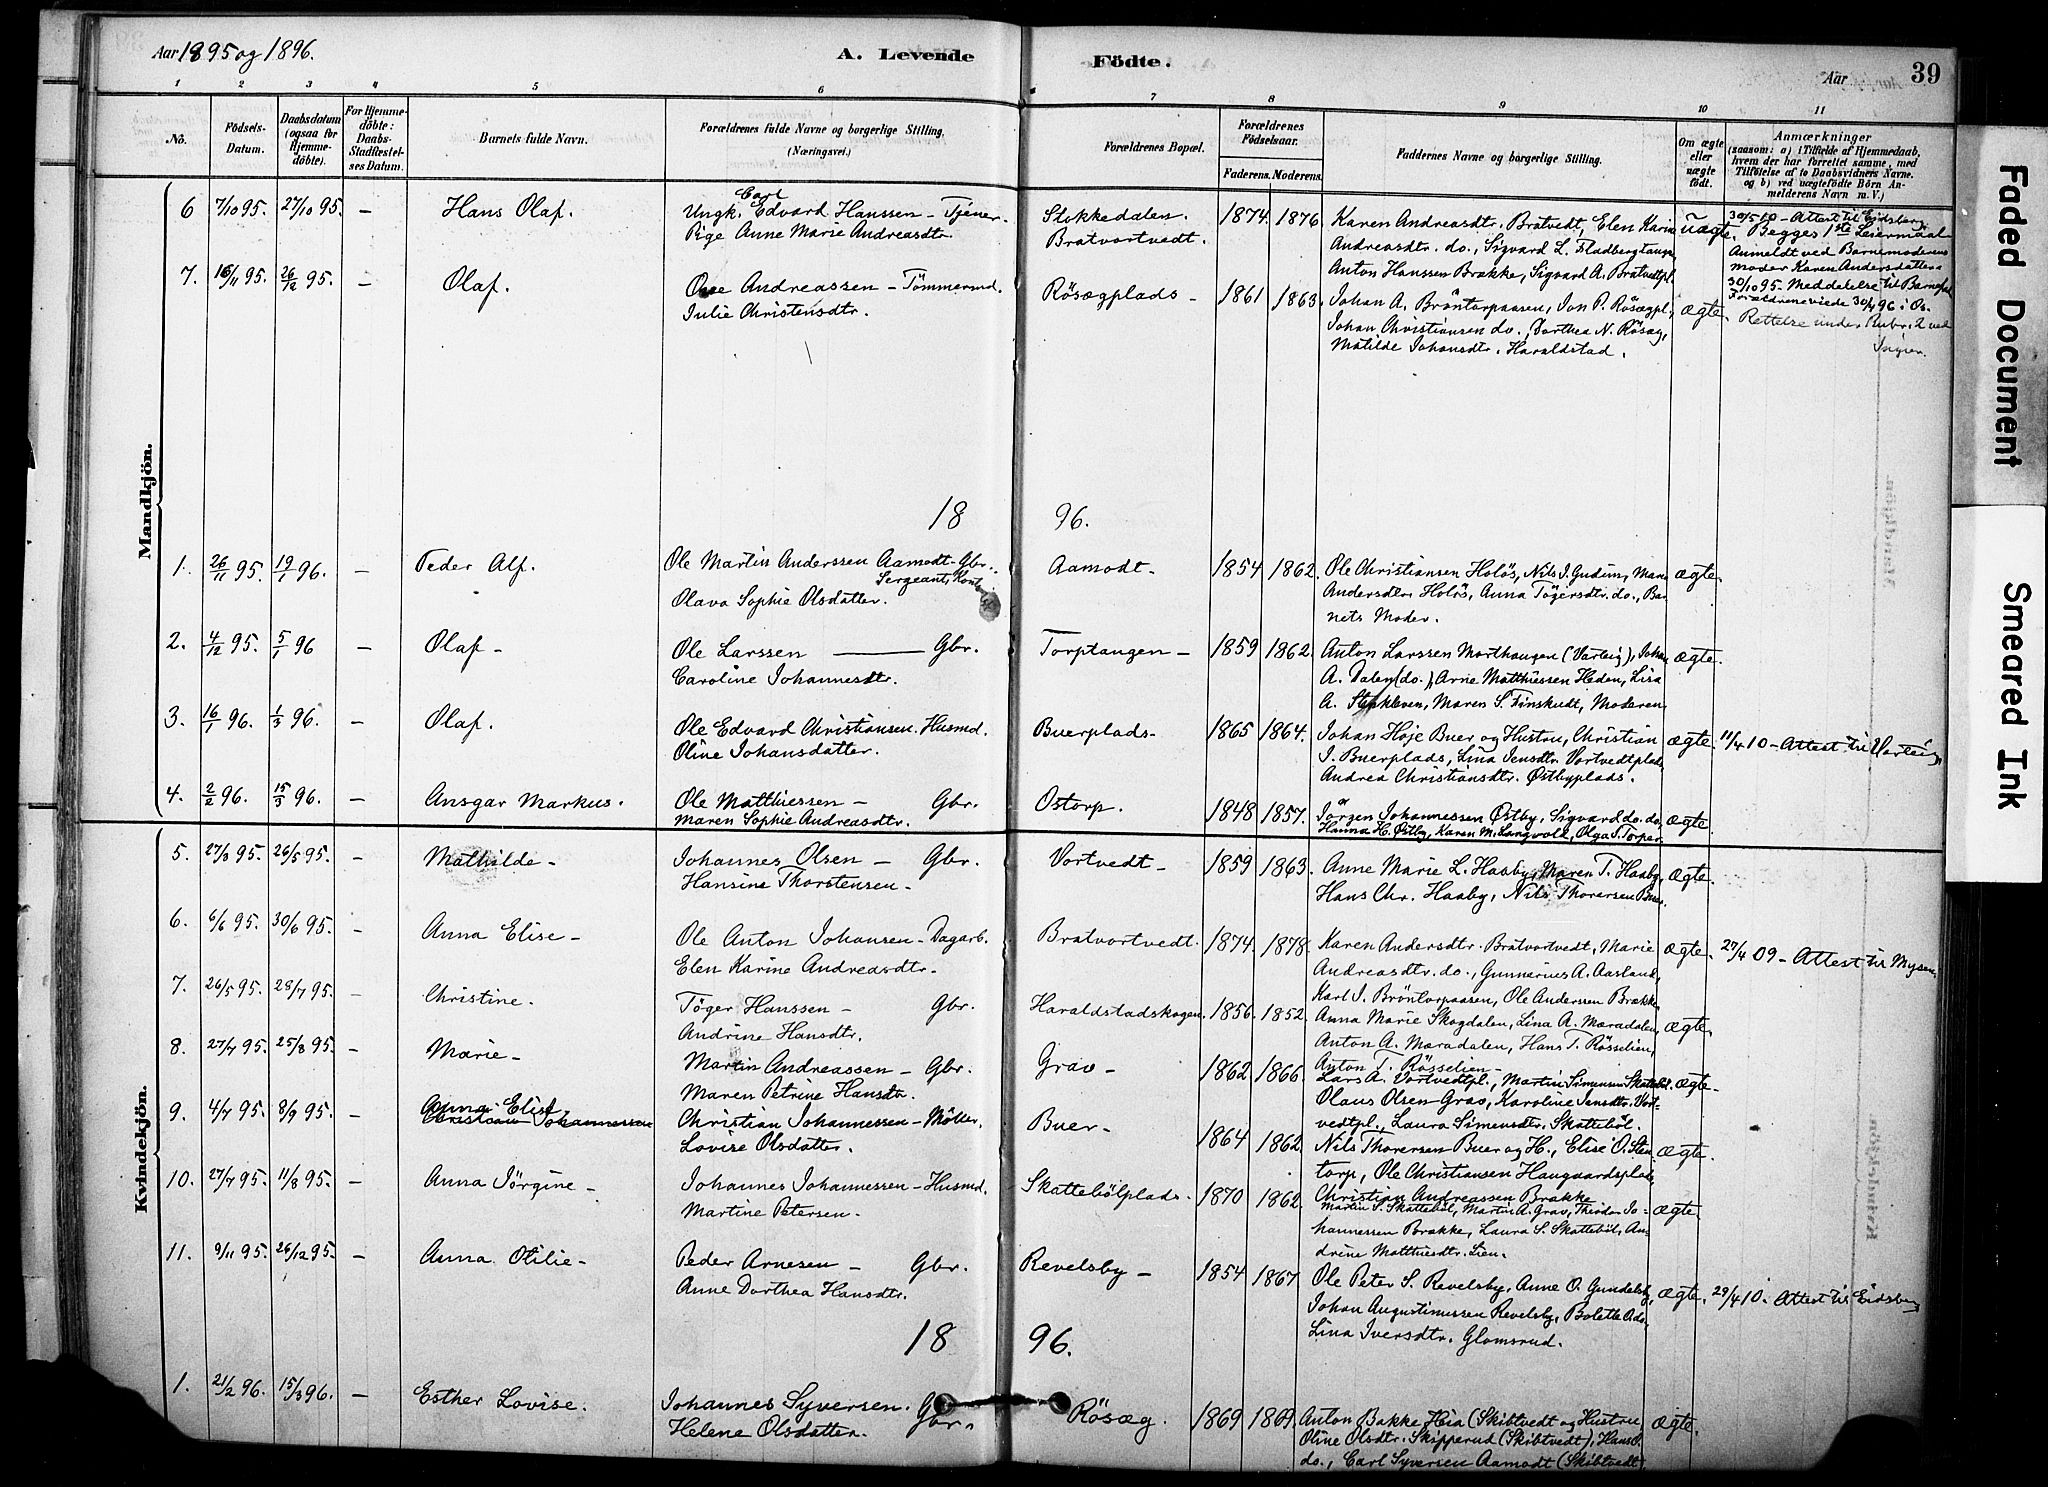 Aar 1895 og 1896.
A. Levende
Födte.
Aar
39
1 2 3 4 5 6 7 8 9 10 11
No.
Födsels-Datum.
Daabsdatum (ogsaa for Hjemmedöbte).
For Hjemmedöbte: Daabs-Stadfæstelses Datum.
Barnets fulde Navn.
Forældrenes fulde Navne og borgerlige Stilling. (Næringsvei.)
Forældrenes Bopæl.
Forældrenes Födselsaar.
Faderens. Moderens.
Faddernes Navne og borgerlige Stilling.
Om ægte eller uægte födt.
Anmærkninger
(saasom: a) i Tilfælde af Hjemmedaab, hvem der har forrettet samme, med Tilföielse af to Daabsvidners Navne. og b) ved uægtefödte Börn Anmelderens Navn m. V.)
Mandkjön.
6 7/10 95. 27/10 95. — Hans Olaf. Ungk. Carl Edvard Hanssen — Tjener. Stokkedalen. 1874. 1876. Karen Andreasdtr. Bratvedt, Elen Karine uægte. 30/5 10 — Attest til Eidsberg
Pige Anne Marie Andreasdtr. Bratvortvedt. Andreasdtr. do., Sigvard L. Fladbergtangen, Begges 1ste Leiermaal
Anton Hanssen Brække, Sigvard A. Bratvedtpl. Anmeldt ved Barnemoderens
moder Karen Andersdatter
30/10 95. Meddelelse til Barnefad.
7. 16/11 95. 26/12 95. — Olaf. Ole Andreassen — Tömmermd. Rösægplads — 1861 1863. Johan A. Bröntorpaasen, Jon P. Rösægpl., ægte. Forældrene viede 30/4 96 i Os.
Julie Christensdtr. Johan Christiansen do., Dorthea N. Rösæg, Rettelse under Rubr. 2 ved
Matilde Johansdtr. Haraldstad.
1896.
1. 26/11 95. 19/1 96. — Peder Alf. Ole Martin Anderssen Aamodt — Gbr. Aamodt — 1854 1862. Ole Christiansen Holös, Nils J. Gudim, ægte.
Sergeant,
Olava Sophie Olsdatter. Andersdtr. Holös, Anna Tögersdtr. do., Bar-
nets Moder.
2. 4/12 95. 5/1 96 — Olaf — Ole Larssen — Gbr. Torptangen — 1859 1862. Anton Larssen Morthaugen (Varteig), Johan ægte.
Caroline Johannesdtr. A. Dalen (do.), Arne Matthiessen Heden, Lisa
A. Maren S. Finskudt, Moderen
3. 16/1 96. 1/3 96. — Olaf. Ole Edvard Christiansen. Husmd. Buerplads — 1865 1864. Johan Höje Buer og Hustru, Christian ægte. 11/4 10 — Attest til Varteig.
Oline Johansdatter. J. Buerplads, Lina Jensdtr. Vortvedtplads,
Andrea Christiansdtr. Østbyplads.
4. 2/2 96. 15/3 96. — Ansgar Markus. Ole Matthiessen — Gbr. Ostorp. 1848 1857. Jörgen Johannessen Østby, Sigvard do. do., ægte.
Maren Sophie Andreasdtr. Hanna H. Østby, Karen M. Langvold, Olga S. Torper.
Kvindekjön.
5. 27/3 95. 26/5 95. — Mathilde — Johannes Olsen — Gbr. Vortvedt — 1859 1863. Anne Marie L. Haaby, Maren T. Haaby, ægte.
Hansine Thorstensen — Hans Chr. Haaby, Nils Thorersen Buer.
6. 6/6 95. 30/6 95. — Anna Elise — Ole Anton Johansen — Dagarb. Bratvortvedt. 1874. 1878. Karen Andersdtr. Bratvortvedt, Marie ægte. 27/4 09 — Attest til Mysen
Elen Karine Andreasdtr. Andreasdtr. do., Gunnarius A. Aasland,
Karl J. Bröntorpaasen, Ole Anderssen Brække
7. 26/5 95. 28/7 95. — Christine. Töger Hanssen — Gbr. Haraldstadskogen. 1856. 1852. Anna Marie Skogdalen, Lina A. Maradalen, ægte.
Andrine Hansdtr. Anton A. Maradalen, Hans T. Rösselien,
Anton T. Rösselien —
8. 27/7 95. 25/8 95. — Marie — Martin Andreassen — Gbr. Grav — 1862 1866. Lars A. Vortvedtpl., Martin Simensen Skattebøl. ægte.
Maren Petrine Hansdtr. Olaus Olsen Grav, Karoline Jensdtr. Vort-
vedtpl., Laura Simensdtr. Skatteböl.
9. 4/7 95. 8/9 95. — Anna Elise. Christian Johannessen Christian Johannessen — Möller. Buer — 1864 1862. Nils Thorersen Buer og H., Elise O. Sten- ægte.
Lovise Olsdatter. torp, Ole Christiansen Haugaardsplads
Christian Andreassen Brække
10. 27/7 95. 11/8 95. — Anna Jörgine — Johannes Johannessen — Husmd. Skattebölplads. 1870 1862. Martin S. Skatteböl, Martin A. Grav, Theodor Jo- ægte.
Martine Petersen — hannessen Brække, Laura S. Skatteböl, An-
drine Matthisdtr. Lien.
11. 9/11 95. 26/12 95. — Anna Otilie — Peder Arnesen — Gbr. Revelsby — 1854 1867. Ole Peter S. Revelsby, Anne O. Gundelsby, ægte. 29/4 10. Attest til Eidsberg
Anne Dorthea Hansdtr. Johan Augustinussen Revelsby, Bolette A. do.,
Lina Iversdtr. Glomsrud.
1896.
1. 21/2 96. 15/3 96. — Esther Lovise. Johannes Syversen. Gbr. Rösæg. 1869 1869. Anton Bakke Hia (Skibtvedt) og Hustru ægte.
Helene Olsdatter. Oline Olsdtr. Skipperud (Skibtvedt), Hans O.
do., Carl Syversen Aamodt (Skibtvedt).
Faded Document
Smeared Ink